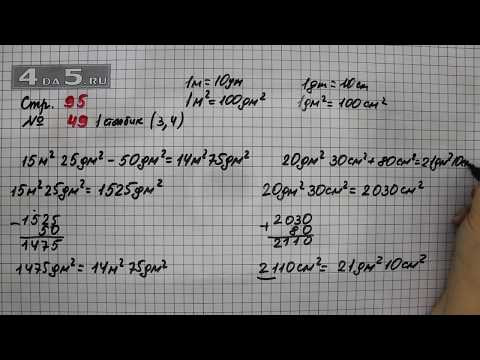 4DA5.RU
Стр. 95
№ 49 1 столбик (3,4)
1м = 10дм
1м² = 100дм²
1дм = 10см
1дм² = 100см²
15м² 25дм² - 50дм² = 14м² 75дм²
15м² 25дм² = 1525дм²
- 1525
50
1475
1475дм² = 14м² 75дм²
20дм² 30см² + 80см² = 21дм² 10см
20дм² 30см² = 2030см²
+ 2030
80
2110
2110см² = 21дм² 10см²